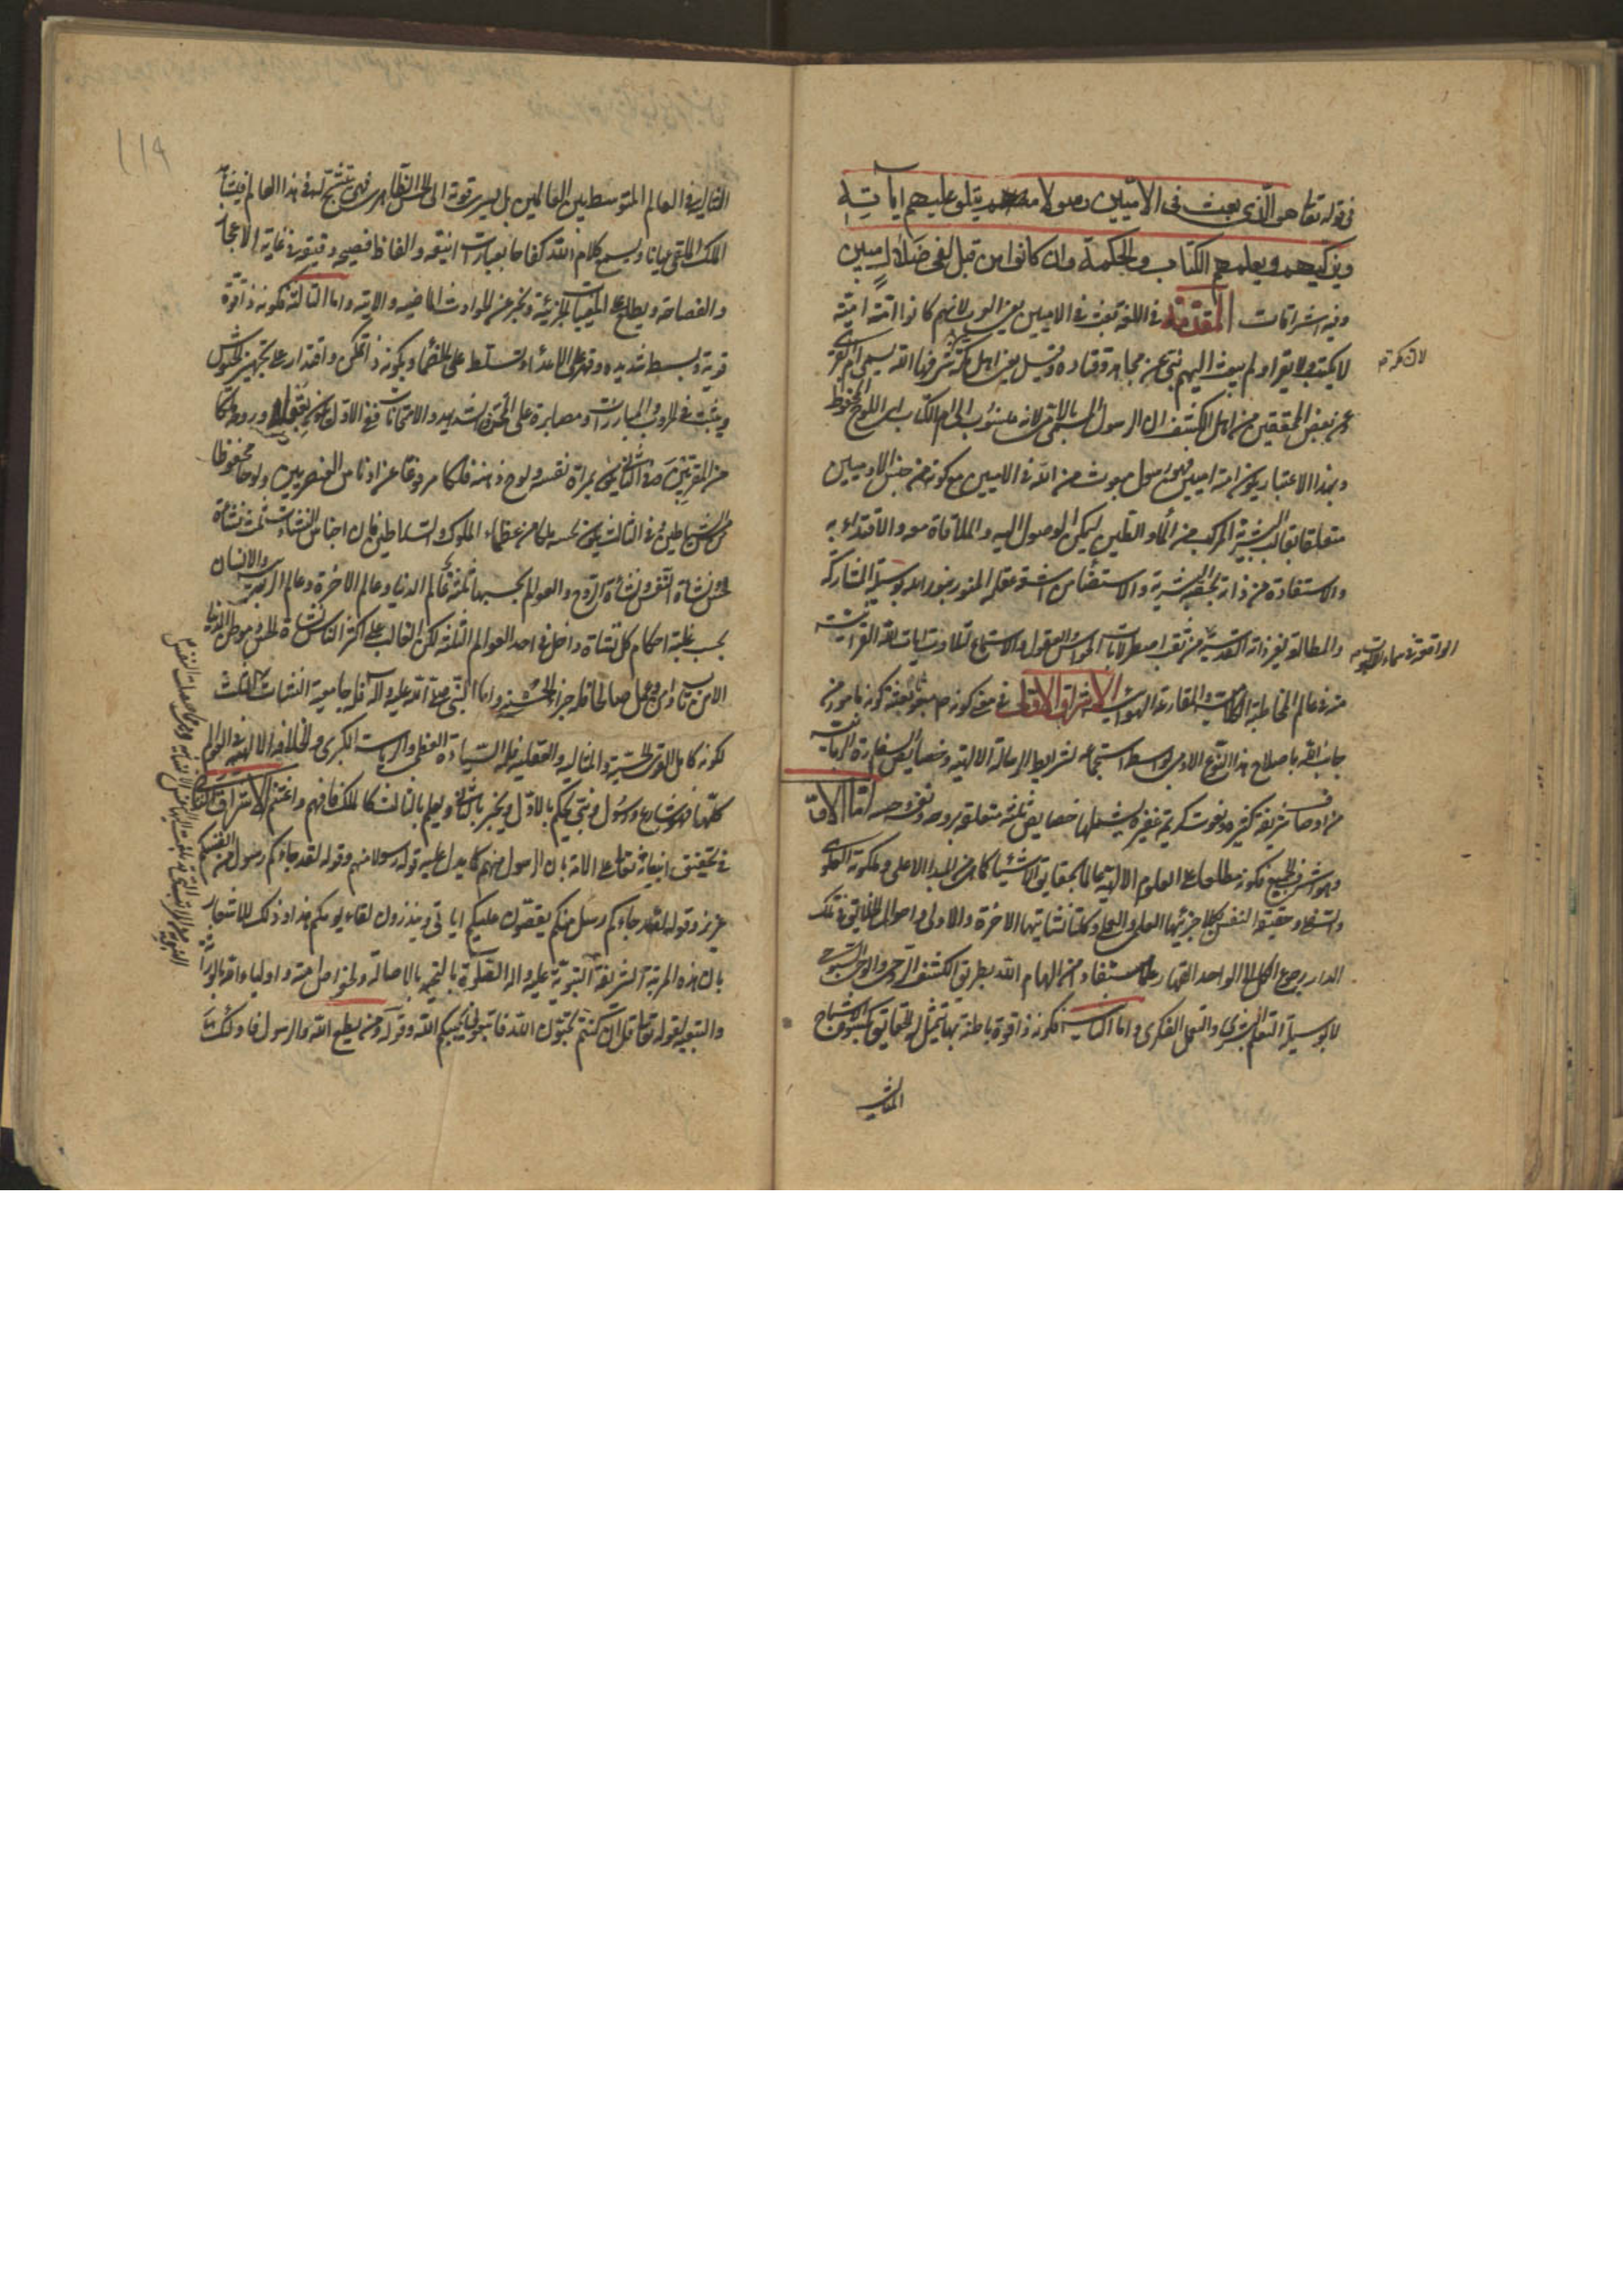 فی قوله تعا هو الّذی بعث فی الامّیین رسولا منهم یتلو علیهم ایاتِهِ
ویزکیهم ویعلمهم الکتاب والحکمة وان کانوا من قبل لفی ضلالٍ مبین
وفیه اشراقات المقدمة فی اللغة بعث فی الامیین یعنی العرب لانهم کانوا امّة امیّة
لا یکتب ولا یقرا ولم یبعث الیهم نبی عن مجاهد وقتاده وقیل یعنی اهل مکّة شرفها الله یسمی ام القری
وعن بعض المحققین من اهل الکشف ان الرسول المسمی بالامی لانه منسوب الی ام الکتاب ای اللوح المحفوظ
وبهذا الاعتبار یکون امته امیین فهو رسول مبعوث من الله فی الامیین مع کونه من جنس الادمیین
متعلقا بقالب البشریة المرکب من الماء والطین لیمکن الوصول الیه والملاقاة معه والاقتداء به
والاستفادة من ذاته بحقیقة البشریة والاستضاء من اشعة عقله المنور بنور الله بوسیلة المشارکة
والمطالعة بغیر ذاته القدسیة من ثقب اصطرلابات الحواس العقول والاستماع لتلاوت ایات الله القرانیة
منه فی عالم المخاطبة المکالمیة المقارعة الهوائیة الاشراق الاول فی معنی کونه ص مبعوثا یعنی کونه مامورا من
جانب الله باصلاح هذا النوع الادمی بواسطة استجماعه لشرایط الرسالة الالهیة وخصایص السفارة الربانیة
من اوصاف شریفة کثیرة ونعوت کریمة غفیرة یشملها خصایص ثلثة متعلقة بروحه ونفسه وحسه امّا الاوّل
وهو اشرف الجمیع فکونه مطلعا علی العلوم الالهیة عالما بحقایق الاشیاء کما هی من المبدا الاعلی وملکوته العلوی
والسفلی وحقیقة النفس بکلا جزئیها العلمی والعملی وکلتا نشاتیها الاخرة والاولی واحوال الخلایق فی تلک
الدار ورجوع الکل الی الواحد القهار علما مستفادا من الهام الله بطریق الکشف الروحی والوحی السبوحی
لا بوسیلة التعلم البشری والتعمل الفکری واما الثانیة فکونه ذا قوة باطنة بها یتمثل له الحقایق بکسوة الاشباح
المثالیة
المثالیة فی العالم المتوسط بین العالمین بل یسری قوته الی الحس الظاهر فهی یتشبح له فی هذا العالم فیشاهد
الملک الملقی عیانا ویسمع کلام الله کفاحا بعبارات انیقه والفاظ فصیحه دقیقه فی غایة الاعجاز
والفصاحه ویطلع علی المغیبات الجزئیة ویخبر عن الحوادث الماضیه والاتیه واما الثالثة فکونه ذا قوة
قویة وبسطة شدیده وقهر علی الاعداء وتسلط علی الخصماء ویکونه ذا تمکن واقتدار علی تجهیز الجیوش
ویثبت فی الحروب والمبارزات ومصابرة علی المحن والشداید والامتحانات ففی الاول یکون بعقله وروحه ملکا
من المقربین وفی الثانی یکون بمرآة نفسه ولوح ذهنه فلکا مرفوعا عن ادناس العنصریین ولوحا محفوظا
من الشیاطین وفی الثالث یکون بحسه ملکا من عظماء الملوک والسلاطین فان اجناس النشات ثلث نشاة
الحس نشاة النفس نشاة الروح والعوالم بحسبها ثلثة عالم الدنیا وعالم الاخرة وعالم الربوبیة والانسان
بحسب غلبة احکام کل نشاة داخل فی احد العوالم الثلثة لکن الغالب علی اکثر الناس نشاة الحس وموطن الدنیا
الا من تاب وامن وعمل صالحا فله جزاء الحسنی واما النبی صلی الله علیه واله فله جامعیة النشات الثلث
لکونه کامل القوی الحسیة والمثالیة والعقلیة فله السیادة العظمی والریاسة الکبری والخلافة الالهیة فی العوالم
کلها فهو شارع ورسول ونبی یحکم بالاول ویخبر بالثانی ویعلم بالثالث کالملک فافهم واغتنم الاشراق الثانی
فی تحقیق انبعاثه تعالی علی الامة بان الرسول منهم کما یدل علیه قوله رسولا منهم وقوله لقد جاءکم رسول من انفسکم
عزیز وقوله لقد جاءکم رسل منکم یقصون علیکم ایاتی وینذرون لقاء یومکم هذا وذلک للاشعار
بان هذه المرتبة الشریفة النبویة علیه واله الصلوة بالنحیة بالاصالة ولخواص امته واولیاء امته بالوراثة
والتبعیة لقوله تعالی قل ان کنتم تحبون الله فاتبعونی یحببکم الله وقوله ومن یطع الله والرسول فاولئک